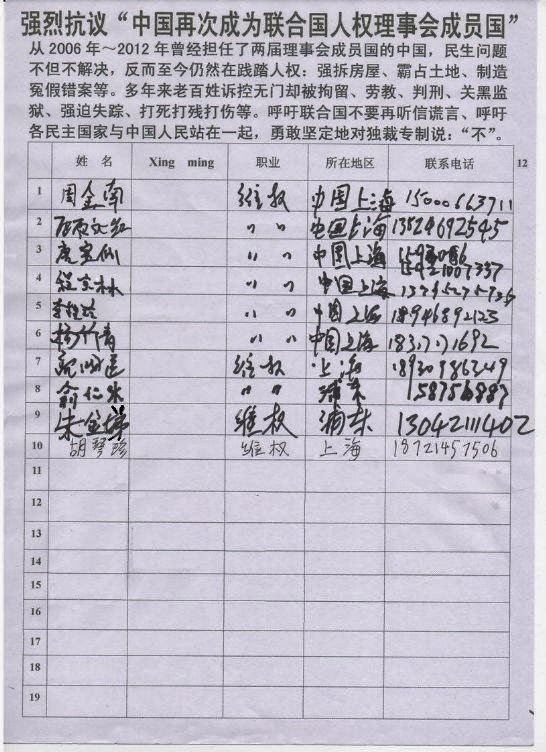 强烈抗议“中国再次成为联合国人权理事会成员国”
从 2006 年～2012 年曾经担任了两届理事会成员国的中国，民生问题
不但不解决，反而至今仍然在践踏人权：强拆房屋、霸占土地、制造
冤假错案等。多年来老百姓诉控无门却被拘留、劳教、判刑、关黑监
狱、强迫失踪、打死打残打伤等。呼吁联合国不要再听信谎言、呼吁
各民主国家与中国人民站在一起，勇敢坚定地对独裁专制说：“不”。
姓 名 Xing ming 职业 所在地区 联系电话 12
1 周金南 维权 中国上海 15000663711
2 〃 〃 中国上海 13524692545
3 〃 〃 中国上海 15921007337
4 〃 〃 中国上海
5 〃 〃 中国上海 18946892123
6 〃 〃 中国上海
7 维权 上海 18930986249
8 俞仁米 〃 〃 浦东 58756887
9 维权 浦东 13042111402
10 胡琴珍 维权 上海 18721457506
11
12
13
14
15
16
17
18
19